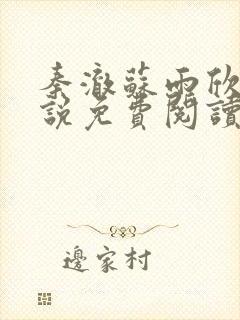 秦澈蘇雨欣
說免費閱讀
邊家村